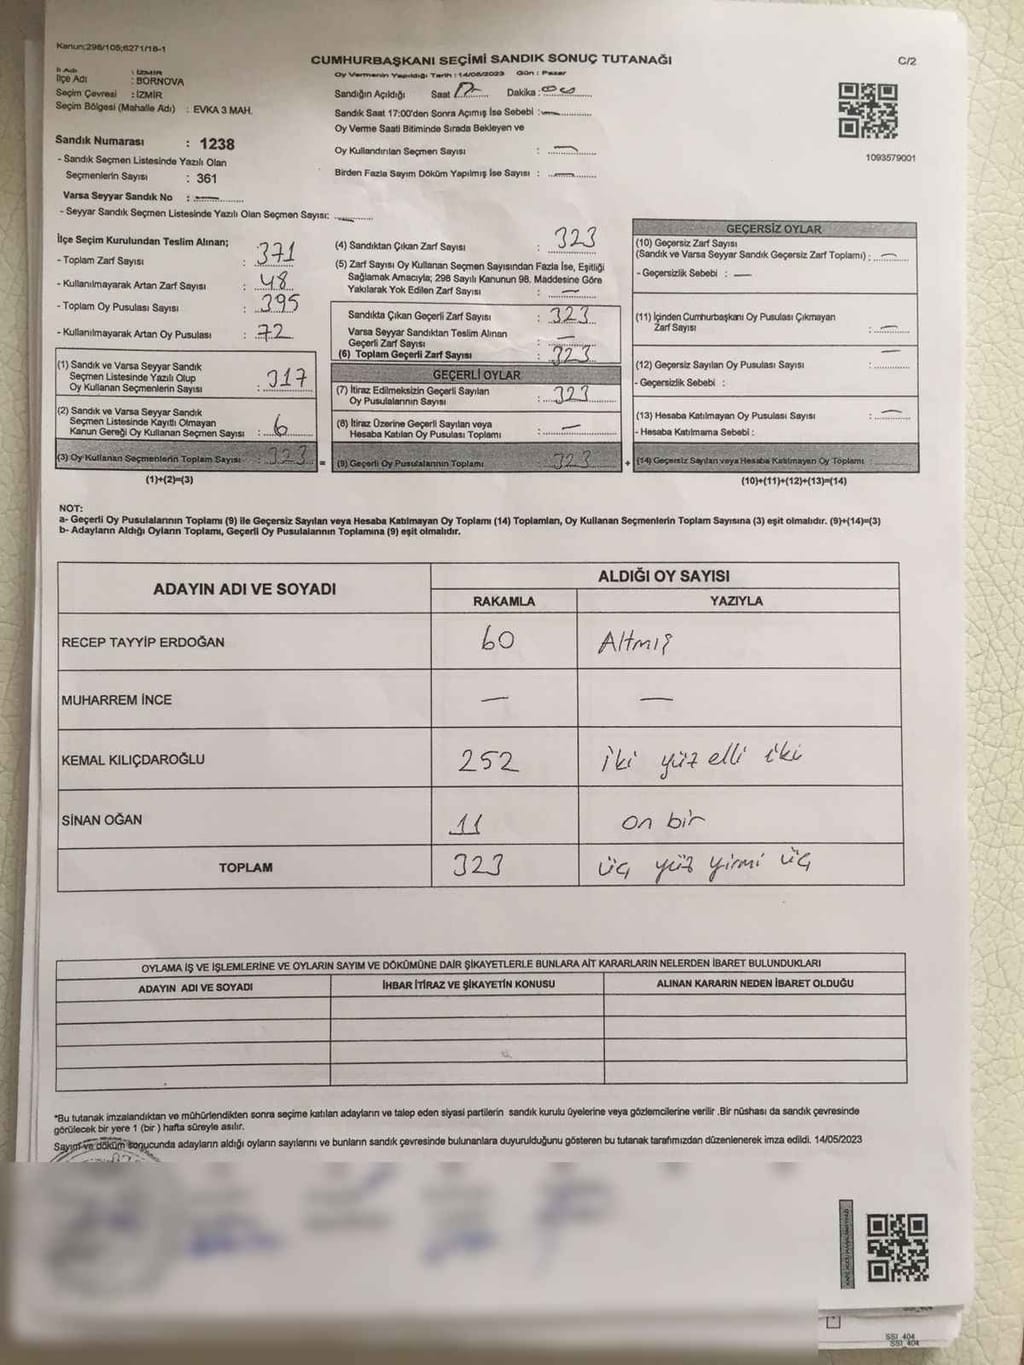 Kanun:298/105;6271/18-1
CUMHURBAŞKANI SEÇİMİ SANDIK SONUÇ TUTANAĞI
C/2
Oy Vermenin Yapıldığı Tarih : 14/05/2023 Gün : Pazar
İl Adı : İZMİR
İlçe Adı : BORNOVA
Seçim Çevresi : İZMİR
Seçim Bölgesi (Mahalle Adı) : EVKA 3 MAH.
Sandık Numarası : 1238
- Sandık Seçmen Listesinde Yazılı Olan
Seçmenlerin Sayısı : 361
Varsa Seyyar Sandık No : —
- Seyyar Sandık Seçmen Listesinde Yazılı Olan Seçmen Sayısı: —
Sandığın Açıldığı Saat 17 Dakika : 00
Sandık Saat 17:00'den Sonra Açımış İse Sebebi : —
Oy Verme Saati Bitiminde Sırada Bekleyen ve
Oy Kullandırılan Seçmen Sayısı : —
Birden Fazla Sayım Döküm Yapılmış İse Sayısı : —
1093579001
İlçe Seçim Kurulundan Teslim Alınan;
- Toplam Zarf Sayısı : 371
- Kullanılmayarak Artan Zarf Sayısı : 48
- Toplam Oy Pusulası Sayısı : 395
- Kullanılmayarak Artan Oy Pusulası : 72
(1) Sandık ve Varsa Seyyar Sandık
Seçmen Listesinde Yazılı Olup
Oy Kullanan Seçmenlerin Sayısı : 317
(2) Sandık ve Varsa Seyyar Sandık
Seçmen Listesinde Kayıtlı Olmayan
Kanun Gereği Oy Kullanan Seçmen Sayısı : 6
(3) Oy Kullanan Seçmenlerin Toplam Sayısı : 323 =
(1)+(2)=(3)
(4) Sandıktan Çıkan Zarf Sayısı : 323
(5) Zarf Sayısı Oy Kullanan Seçmen Sayısından Fazla İse, Eşitliği
Sağlamak Amacıyla; 298 Sayılı Kanunun 98. Maddesine Göre
Yakılarak Yok Edilen Zarf Sayısı : —
Sandıkta Çıkan Geçerli Zarf Sayısı : 323
Varsa Seyyar Sandıktan Teslim Alınan
Geçerli Zarf Sayısı : —
(6) Toplam Geçerli Zarf Sayısı : 323
GEÇERLİ OYLAR
(7) İtiraz Edilmeksizin Geçerli Sayılan
Oy Pusulalarının Sayısı : 323
(8) İtiraz Üzerine Geçerli Sayılan veya
Hesaba Katılan Oy Pusulası Toplamı : —
(9) Geçerli Oy Pusulalarının Toplamı 323 +
GEÇERSİZ OYLAR
(10) Geçersiz Zarf Sayısı
(Sandık ve Varsa Seyyar Sandık Geçersiz Zarf Toplamı) : —
- Geçersizlik Sebebi : —
(11) İçinden Cumhurbaşkanı Oy Pusulası Çıkmayan
Zarf Sayısı : —
(12) Geçersiz Sayılan Oy Pusulası Sayısı : —
- Geçersizlik Sebebi :
(13) Hesaba Katılmayan Oy Pusulası Sayısı : —
- Hesaba Katılmama Sebebi :
(14) Geçersiz Sayılan veya Hesaba Katılmayan Oy Toplamı :
(10)+(11)+(12)+(13)=(14)
NOT:
a- Geçerli Oy Pusulalarının Toplamı (9) ile Geçersiz Sayılan veya Hesaba Katılmayan Oy Toplamı (14) Toplamları, Oy Kullanan Seçmenlerin Toplam Sayısına (3) eşit olmalıdır. (9)+(14)=(3)
b- Adayların Aldığı Oyların Toplamı, Geçerli Oy Pusulalarının Toplamına (9) eşit olmalıdır.
ADAYIN ADI VE SOYADI ALDIĞI OY SAYISI
RAKAMLA YAZIYLA
RECEP TAYYİP ERDOĞAN 60 Altmış
MUHARREM İNCE — —
KEMAL KILIÇDAROĞLU 252 iki yüz elli iki
SİNAN OĞAN 11 on bir
TOPLAM 323 üç yüz yirmi üç
OYLAMA İŞ VE İŞLEMLERİNE VE OYLARIN SAYIM VE DÖKÜMÜNE DAİR ŞİKAYETLERLE BUNLARA AİT KARARLARIN NELERDEN İBARET BULUNDUKLARI
ADAYIN ADI VE SOYADI İHBAR İTİRAZ VE ŞİKAYETİN KONUSU ALINAN KARARIN NEDEN İBARET OLDUĞU
*Bu tutanak imzalandıktan ve mühürlendikten sonra seçime katılan adayların ve talep eden siyasi partilerin sandık kurulu üyelerine veya gözlemcilerine verilir .Bir nüshası da sandık çevresinde
görülecek bir yere 1 (bir ) hafta süreyle asılır.
Sayım ve döküm sonucunda adayların aldığı oyların sayılarını ve bunların sandık çevresinde bulunanlara duyurulduğunu gösteren bu tutanak tarafımızdan düzenlenerek imza edildi. 14/05/2023
SSI_404
SSI_404